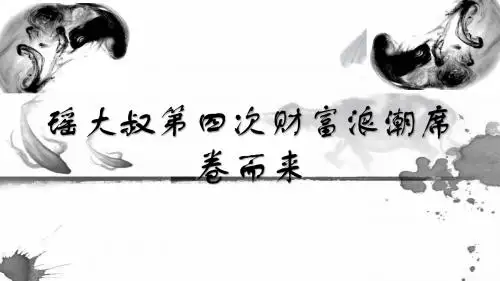 瑶大叔第四次财富浪潮席
卷而来